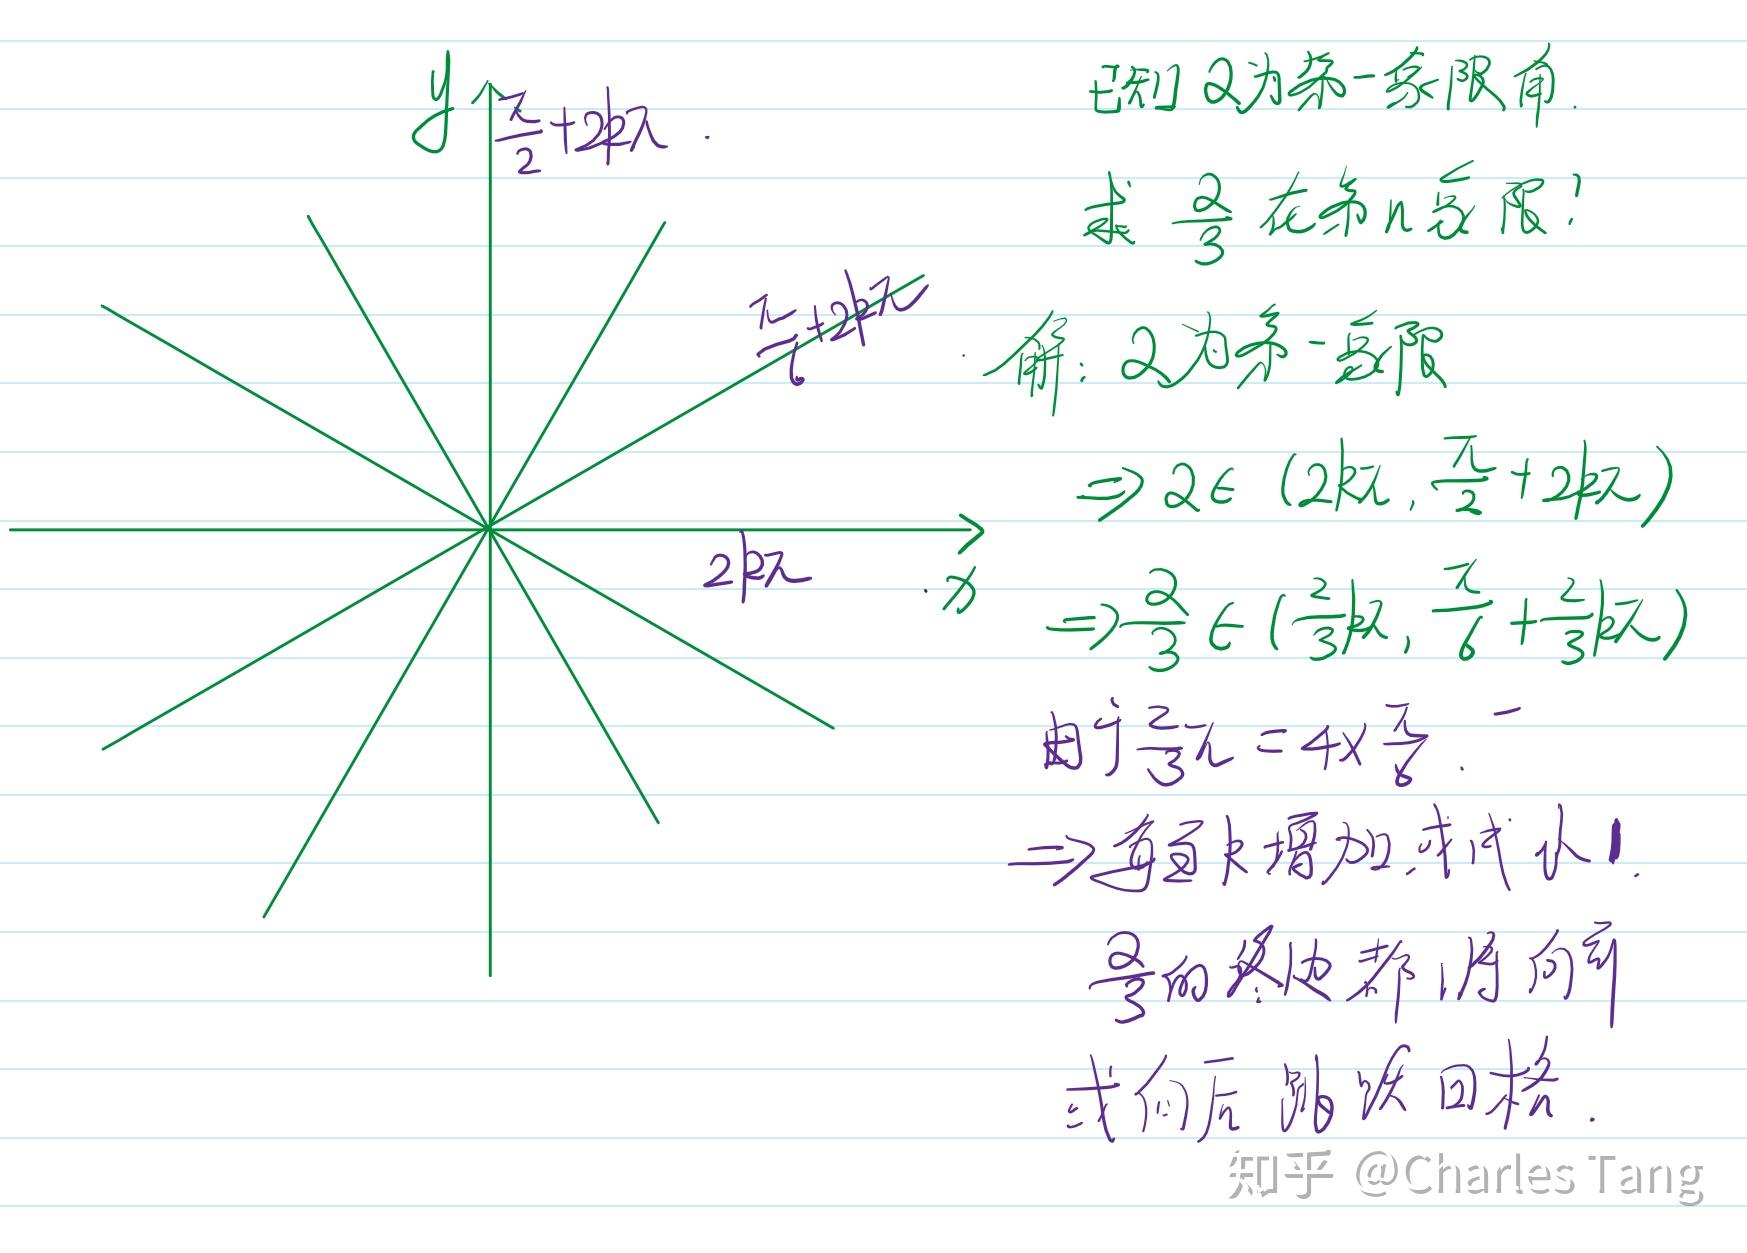 y
π/2+2kπ
π/6+2kπ
2kπ
x
已知 α为第一象限角.
求 α/3 在第n象限?
解: α为第一象限
⇒ α∈(2kπ, π/2+2kπ)
⇒ α/3 ∈(2/3kπ, π/6+2/3kπ)
由于 2/3π = 4×π/6.
⇒ 每当k增加或减小1.
α/3的终边都将向前
或向后跳跃四格.
知乎 @Charles Tang